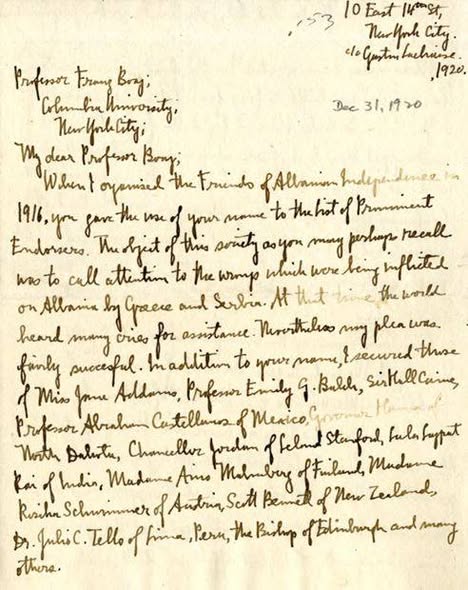 153
10 East 14th St,
New York City.
c/o Gaston Lachaise.
, 1920.
Dec 31, 1920
Professor Franz Boaz;
Columbia University,
New York City;
My dear Professor Boaz;
When I organised the Friends of Albanian Independence in
1916, you gave the use of your name to the list of Prominent
Endorsers. The object of this society as you may perhaps recall
was to call attention to the wrongs which were being inflicted
on Albania by Greece and Serbia. At that time, the world
heard many cries for assistance. Nevertheless my plea was
fairly succesful. In addition to your name, I secured those
of Miss Jane Addams, Professor Emily G. Balch, Sir Hall Caine,
Professor Abraham Castellanos of Mexico, Governor Hanna of
North Dakota, Chancellor Jordan of Leland Stanford, Lala Lajpat
Rai of India, Madame Aino Malmberg of Finland, Madame
Rosika Schwimmer of Austria, Scott Bennett of New Zealand,
Dr. Julio C. Tello of Lima, Peru, the Bishop of Edinburgh and many
others.